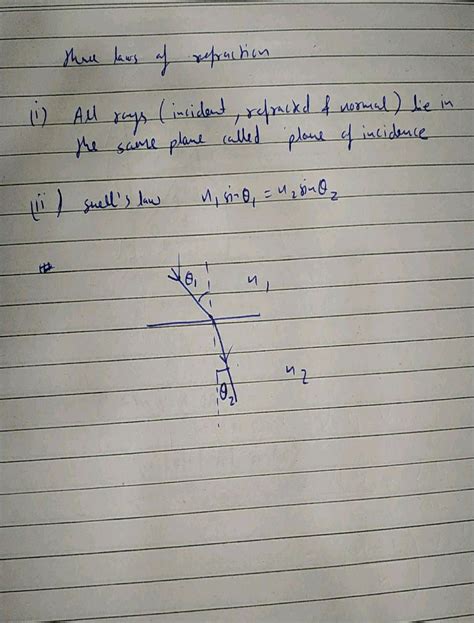 three laws of refraction
(i) All rays (incident, refracted & normal) lie in
the same plane called plane of incidence
(ii) snell's law n₁ sinθ₁ = n₂ sinθ₂
θ₁ n₁
n₂
θ₂